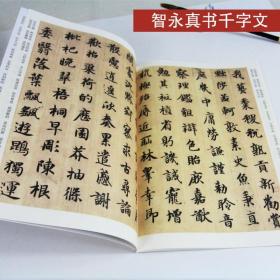 智永真书千字文
新勸賞
孟軻敦素史魚秉
庶幾中庸勞謙謹勑聆音
察理鑒貌辯色貽厥嘉猷
勉其祗植省躬譏誡寵增
抗極殆辱近恥林皋幸即
求古尋論
散慮逍遙欣奏累遣慼謝
歡招渠荷的歷園莽抽條
枇杷晚翠梧桐早彫陳根
委翳落葉飄颻遊鵾獨運